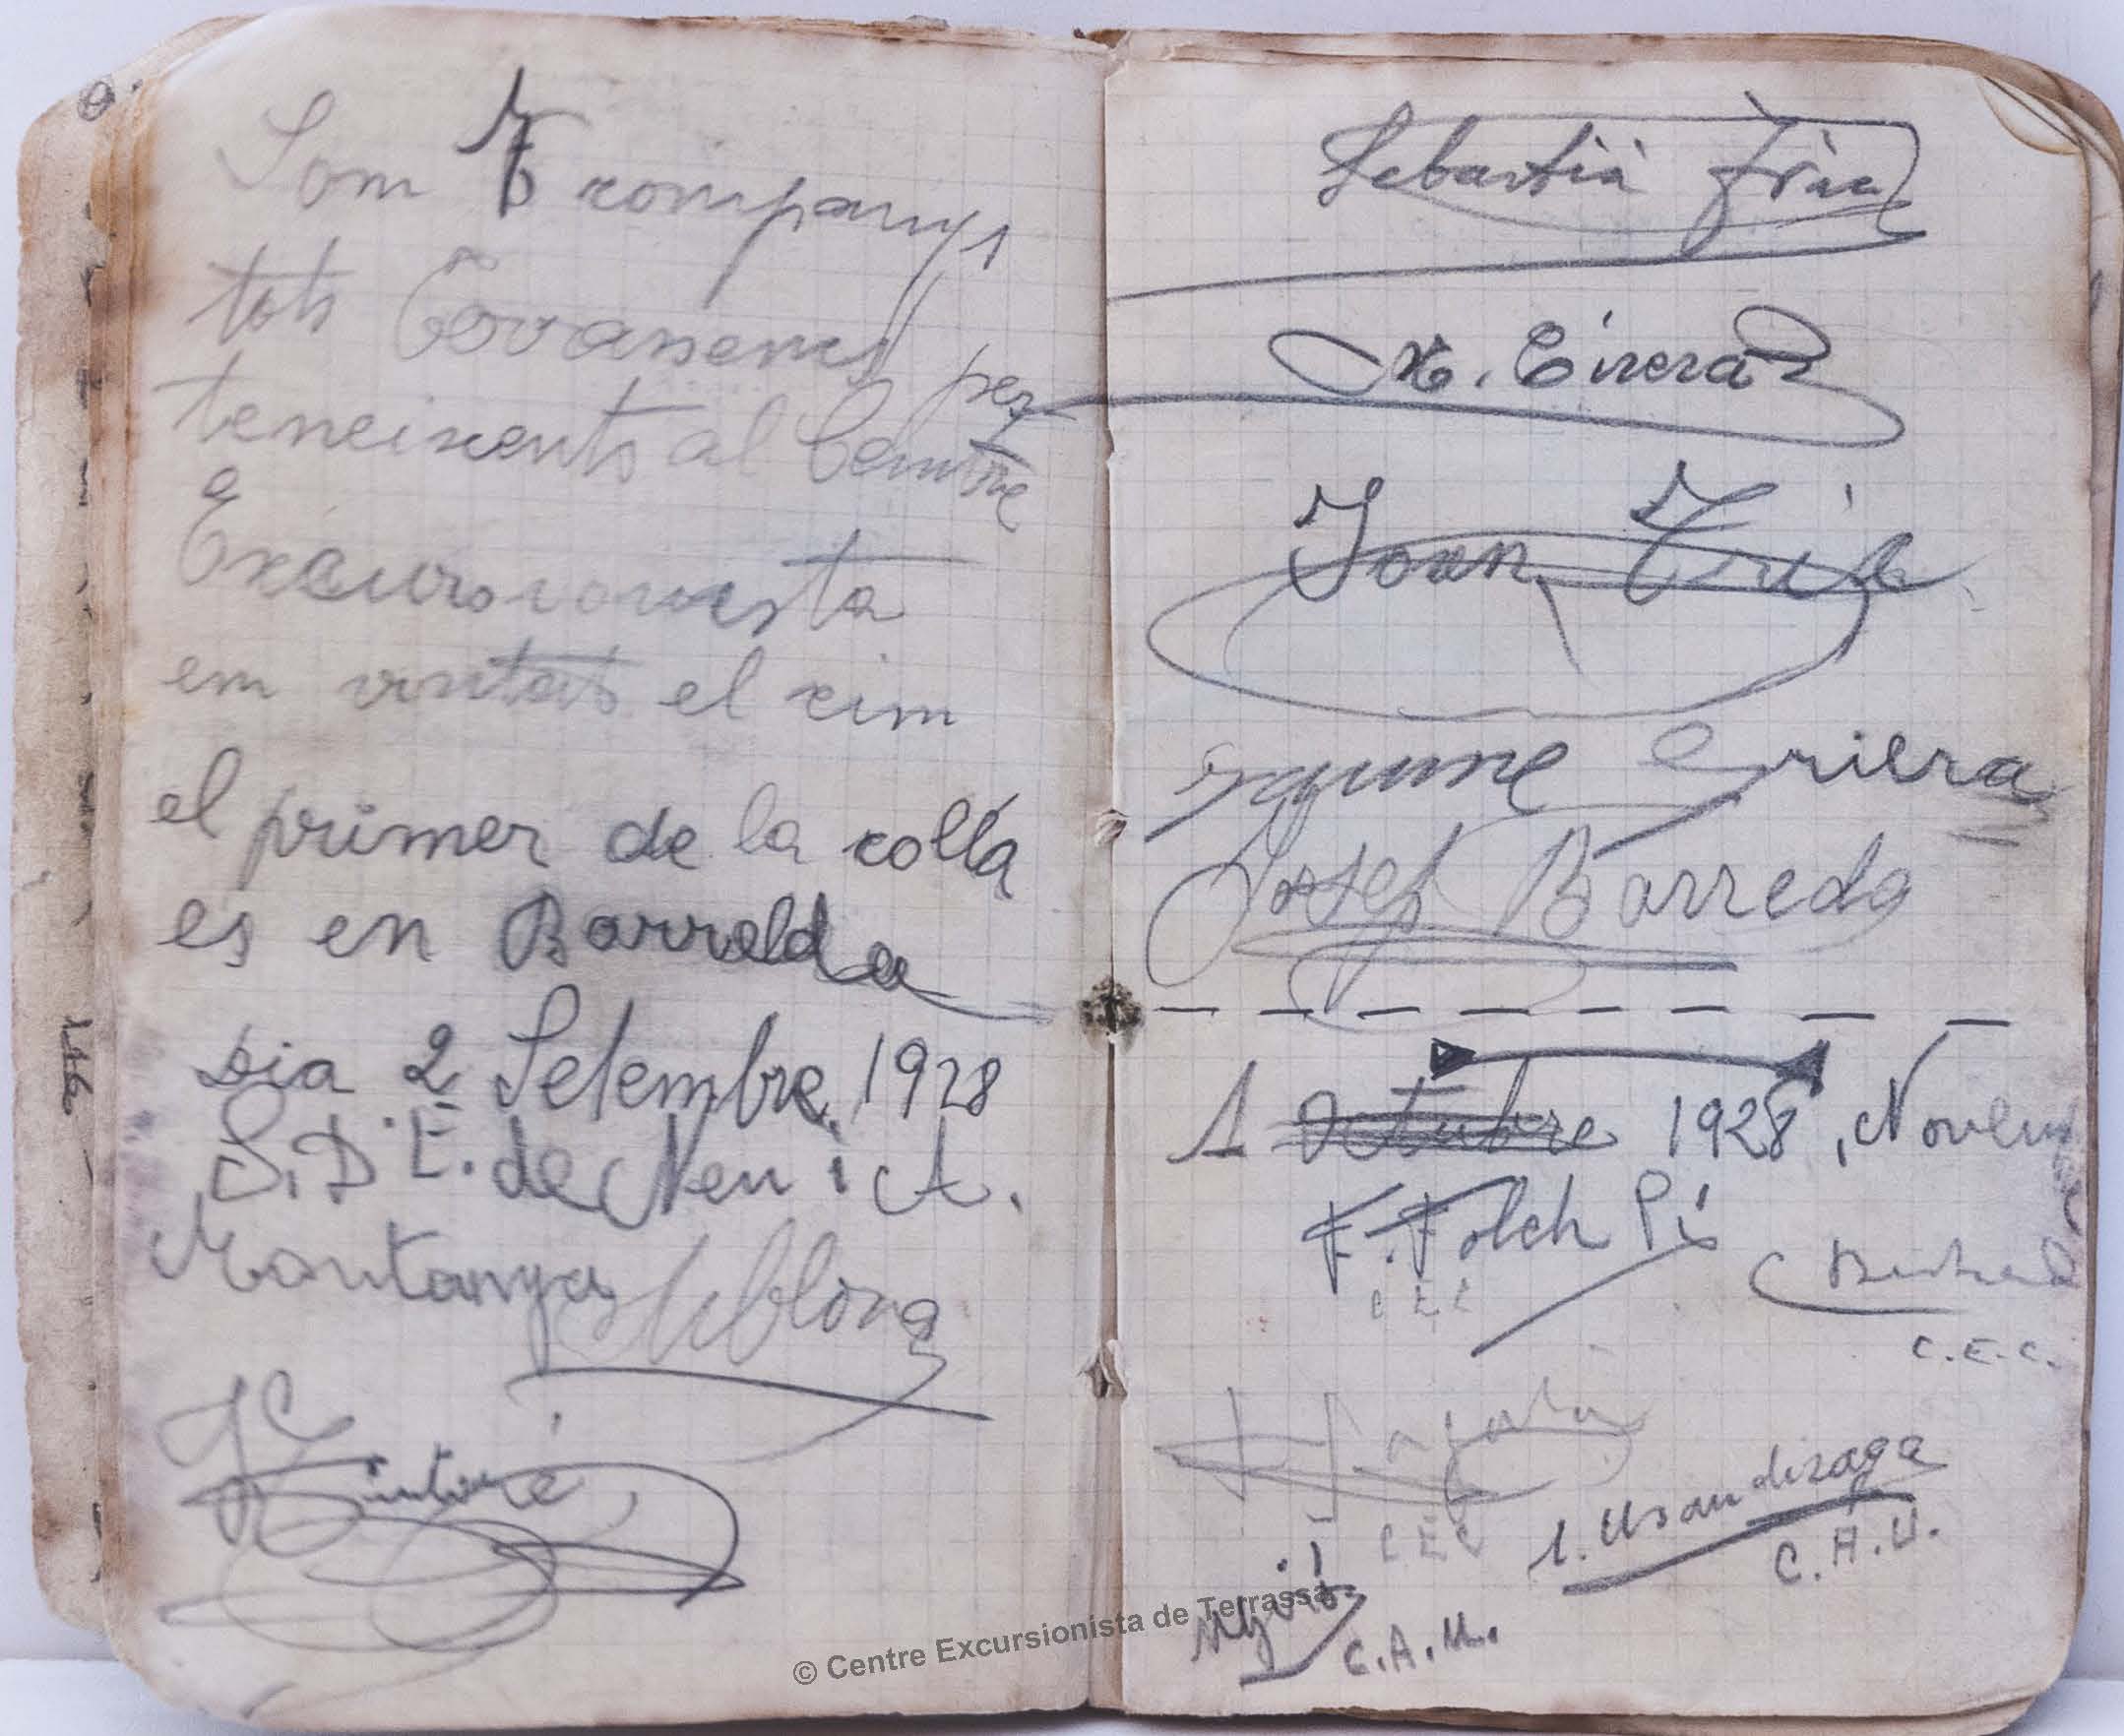 Som 7 companys
tots Terrassencs per
teneixents al Centre
Excursionista
em visitats el cim
el primer de la colla
es en Barrelda
Dia 2 Setembre 1928
S. D. E. de Neu i A.
Montanya
Sebastià
X. Cirera
Joan Tries
Jaume Griera
Josep Barreda
1 Octubre 1928, Novem
F. Folch Pi
C E C
C.E.C.
C E C
I. Usandizaga
C.A.U.
C.A.M.
© Centre Excursionista de Terrassa